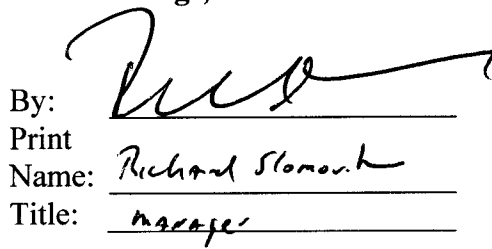 By:
Print
Name: Richard Slomovitz
Title: manager